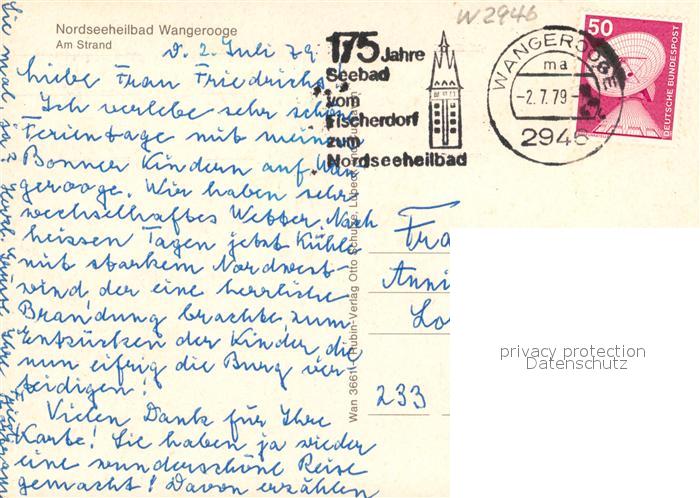 Nordseeheilbad Wangerooge
Am Strand
W2946
d. 2. Juli 79.
Liebe Frau Friedrichs,
Ich verlebe sehr schöne
Ferientage mit meinen
Bonner Kindern auf Wan
gerooge. Wir haben sehr
wechselhaftes Wetter. Nach
heissen Tagen jetzt Kühle
mit starkem Nordwest-
wind der eine herrliche
Brandung brachte, zum
Entzücken der Kinder, die
nun eifrig die Burg ver-
teidigen!
Vielen Dank für Ihre
Karte! Sie haben ja wieder
eine wunderschöne Reise
gemacht! Davon erzählen
Sie mal
175 Jahre
Seebad
vom
Fischerdorf
zum
Nordseeheilbad
WANGEROOGE
ma
-2.7.79
2946
50
DEUTSCHE BUNDESPOST
Wan 3661 Rubin-Verlag Otto Schulze, Lübeck
Fra
Anni
Lo
233
privacy protection
Datenschutz